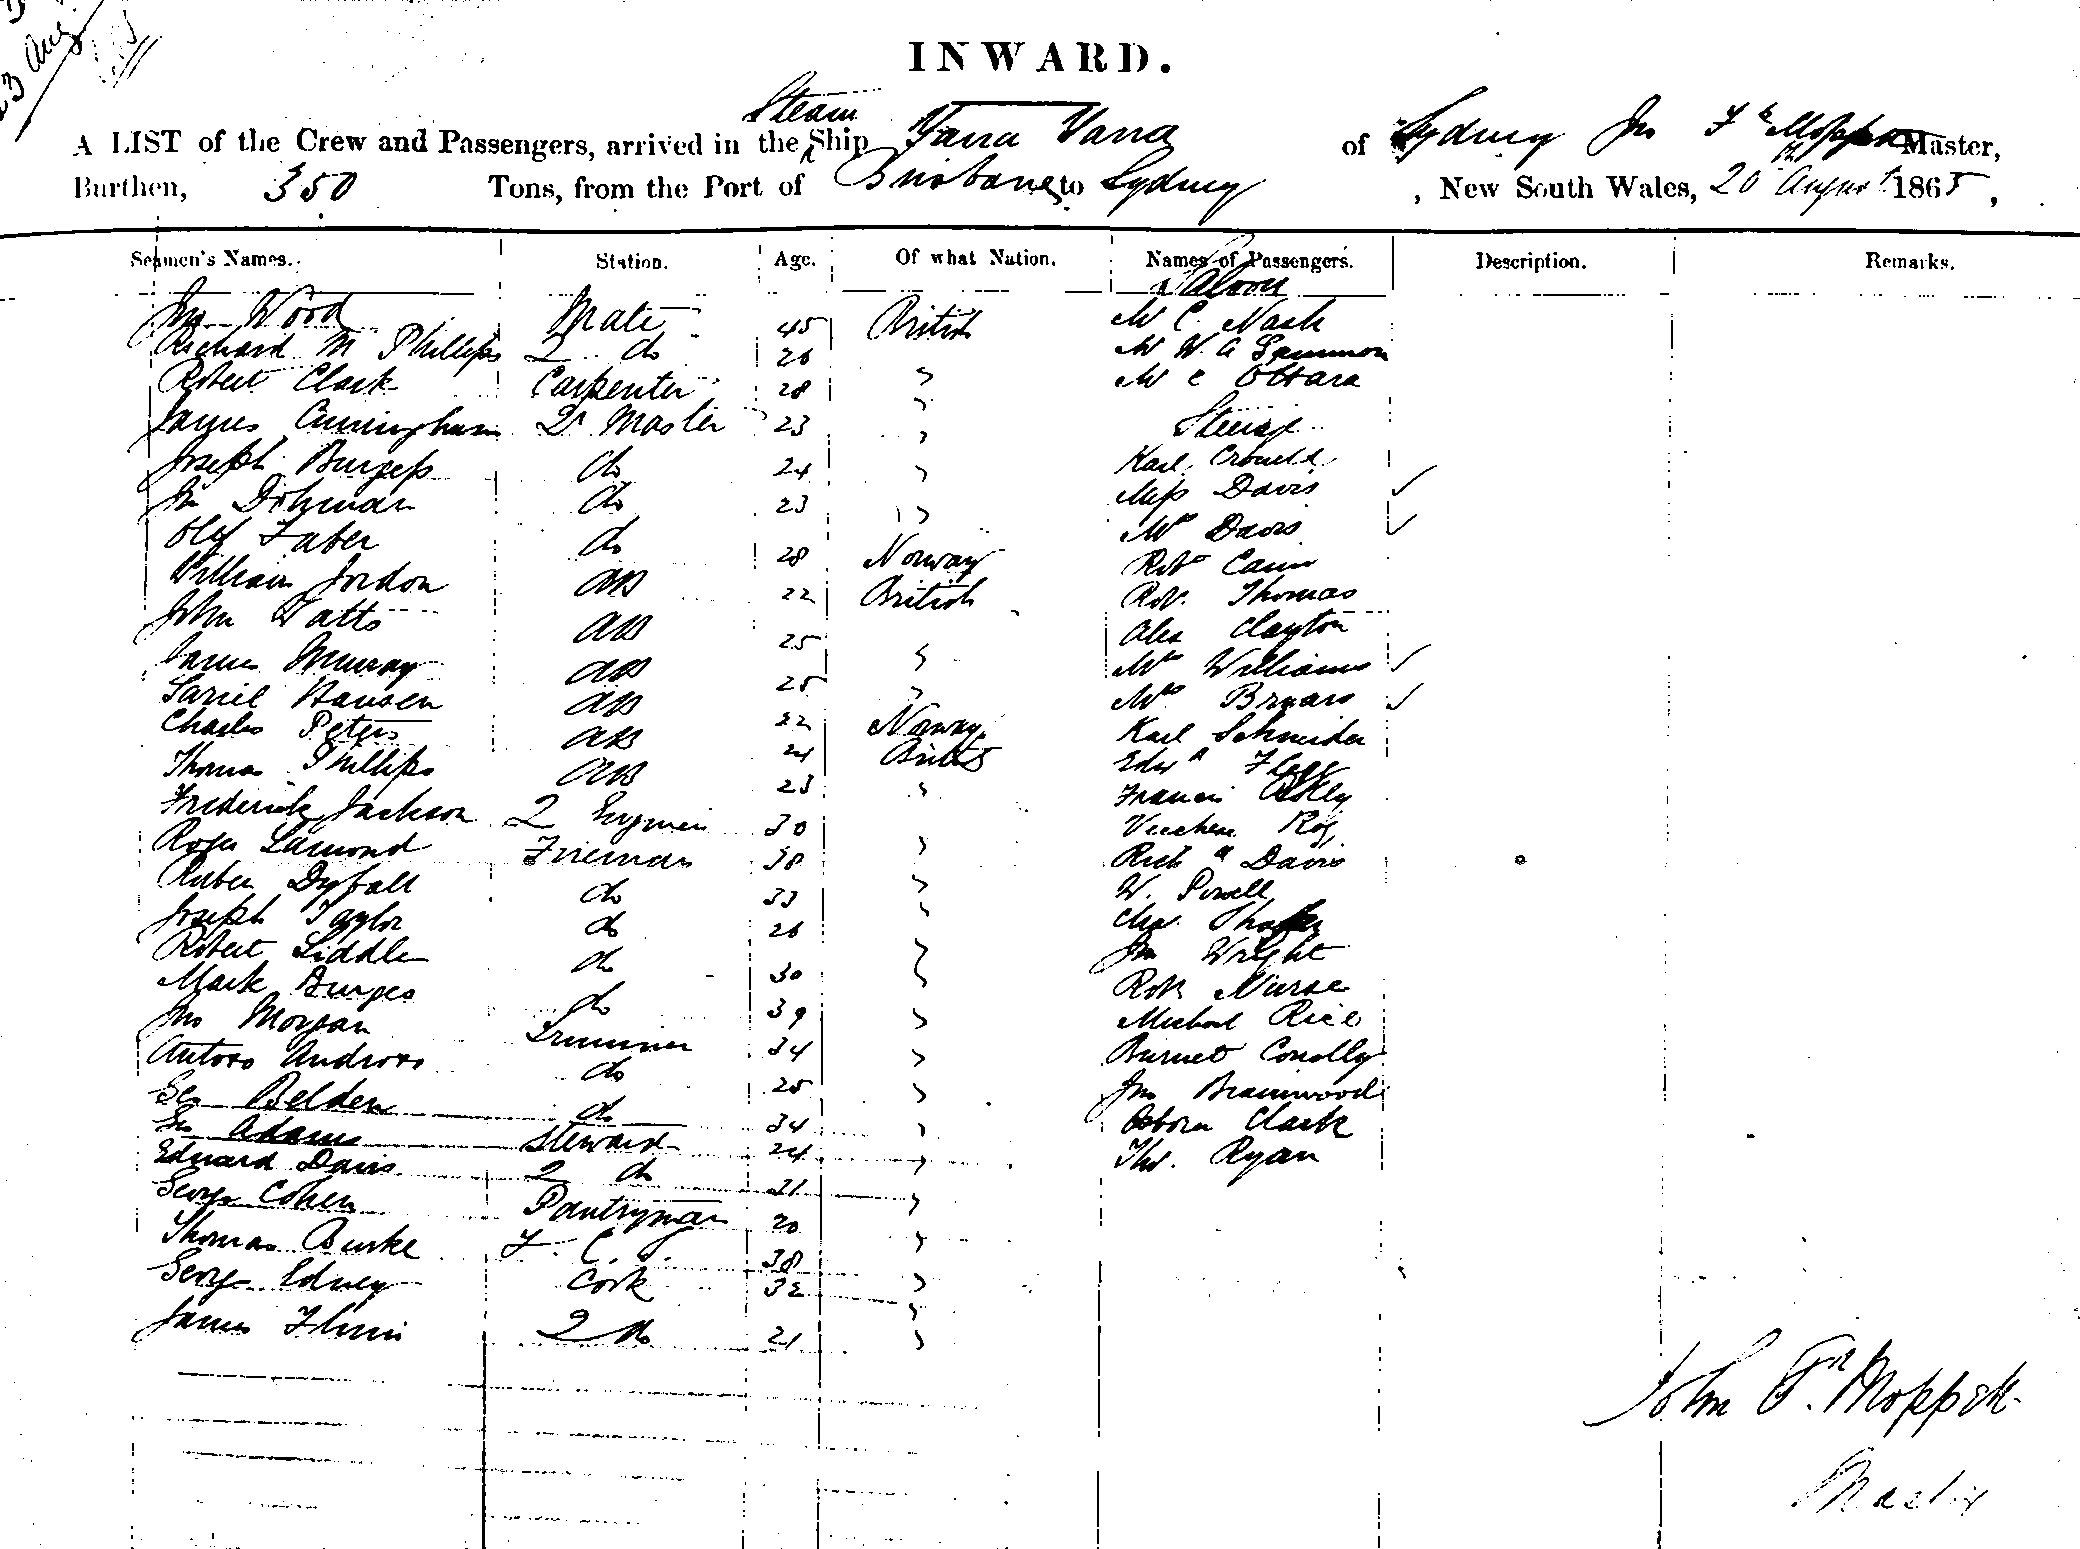 23 Aug
INWARD.
Steam
A LIST of the Crew and Passengers, arrived in the Ship Yarra Yarra of Sydney Jno Fk Moppett Master,
Burthen, 350 Tons, from the Port of Brisbane to Sydney, New South Wales, 20th August 1865,
Seamen's Names. Station. Age. Of what Nation. Names of Passengers. Description. Remarks.
Saloon
Jno Wood Mate 45 British Mr C. Nash
Richard M Phillips 2 do 26 Mr W. A Sammon
Robert Clark Carpenter 28 " Mr C OHara
James Cunningham Qr Master 23 " Steerage
Joseph Burgess do 24 " Karl
Jno Dohman do 23 " Miss Davis ✓
Olef Faber do 28 Norway Mrs Davis ✓
William Jordon AB 22 British Robt Cann
John Watts AB 25 Rob. Thomas
James Murray AB 25 " Alex Clayton
Hansen AB 22 Norway Mrs Williams ✓
Charles Peters AB 24 British Mrs ✓
Thomas Phillips AB 23 " Karl Schneider
Frederick Jackson 2 Engineer 30 Edwd
Roger Lamond Fireman 38 " Francis
Ruben Dyball do 33 "
Joseph Taylor do 26 " Richd Davis
Robert Liddle do 30 " W. Powell
Mark Burges do 39 " Chas
Jno Morgan Trimmer 34 " Jno Wright
Antoro Androro do 25 " Robt Nurse
Geo Belden do 34 " Michael Rice
Jno Adams Steward 24 " Burnet Conolly
Edward Davis 2 do 21 " Jno Braimwood
George Cohen Pantryman 20 " Osborn Clark
Thomas Burke F. C. 38 " Thos. Ryan
George Edney Cook 32 "
James Flinn 2 do 21 "
John Fk Moppett
Master